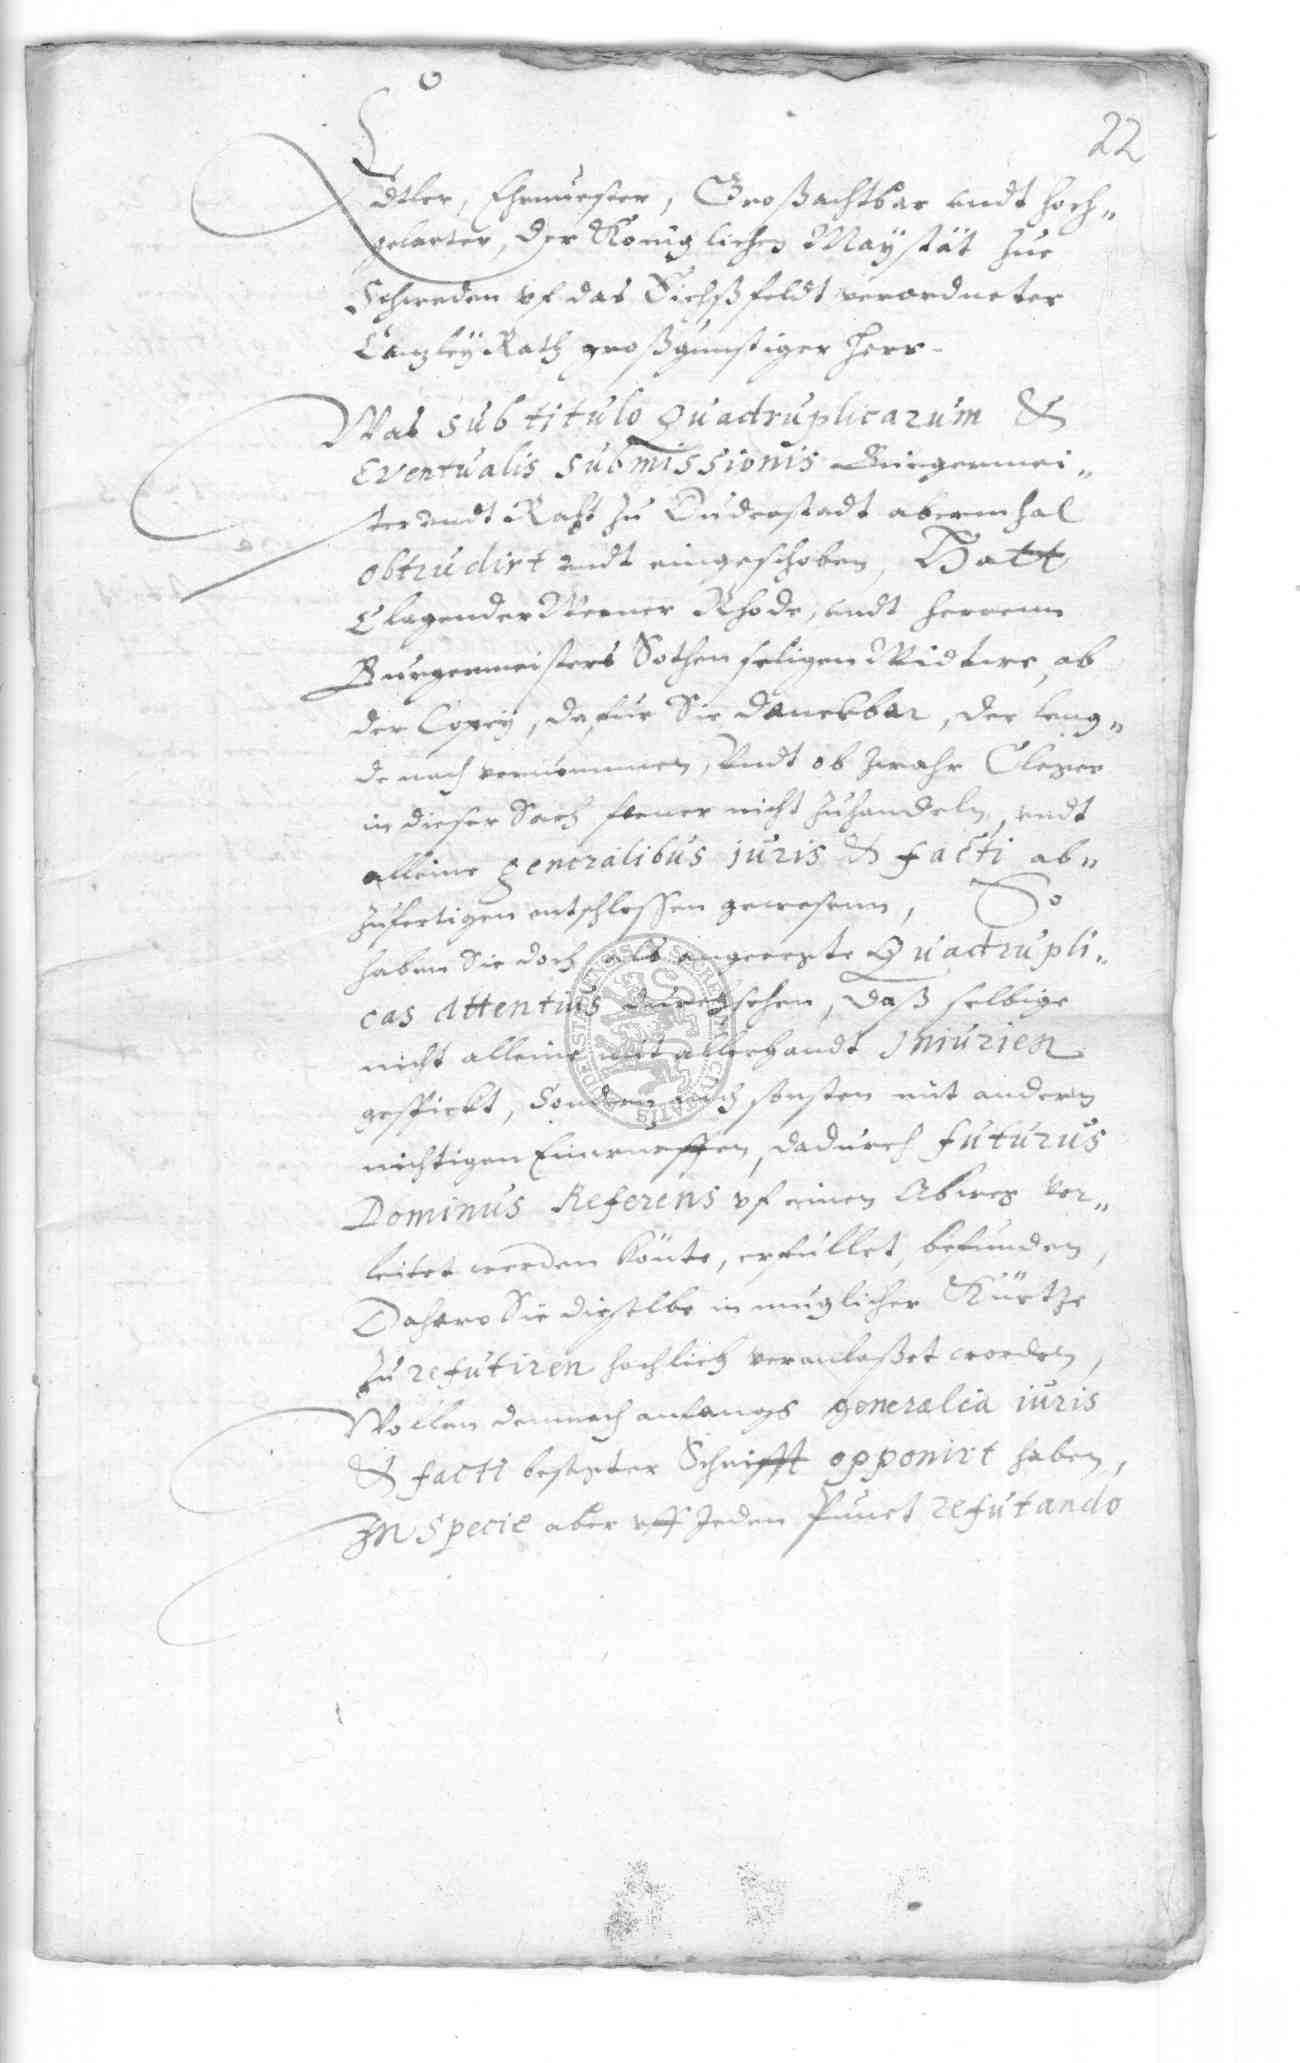 22
Edtler, Ehrnvester, Großachtbar undt hoch„
gelarter, der Königlichen Mayestät zue
Schweden uf das Eichßfeldt verordneter
Cantzley Rath großgünstiger Herr.
Was sub titulo Quadruplicarum &
Eventualis submissionis Bürgermei„
ster undt Raht zu Duderstadt abermhal
obtrudirt undt eingeschoben, Hatt
Clagender Werner Rhode, undt Herrenn
Burgermeisters Sothen seligen Widtwe, ab
der Copey, dafür Sie danckbar, der leng„
de nach vernommen, Undt ob zwahr Cleger
in dieser Sach ferner nicht zuhandeln, undt
alleine generalibus iuris & facti ab„
zufertigen entschlossen gewesenn, So
haben Sie doch als angeregte Quadrupli„
cas attentius durchsehen, daß selbige
nicht alleine mit allerhandt Iniurien
gespickt, Sondern auch sonsten mit andern
nichtigen Einwurffen, dadurch futurus
Dominus Referens uf einen Abweg ver„
leitet werden könte, erfüllet, befunden,
Dahero Sie dieselbe in muglicher Kürtze
zu refutiren hochlich veranlaßet worden,
Wollen demnach anfangs generalia iuris
& facti besagter Schrifft opponirt haben,
In specie aber uff Jeden Punct refutando